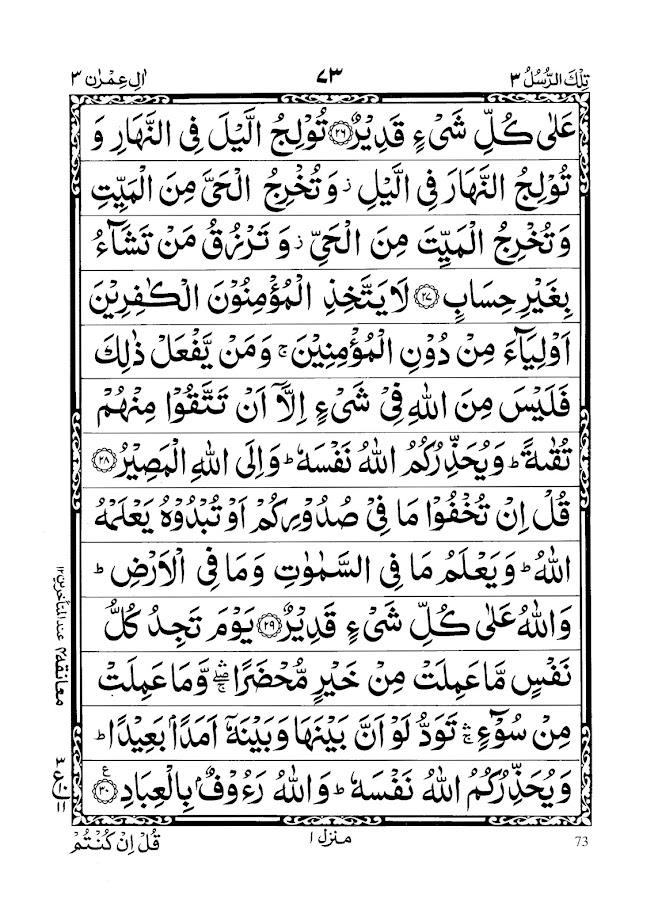 تِلۡكَ الرُّسُلُ ٣
٧٣
اٰلِ عِمۡرٰن ٣
عَلٰى كُلِّ شَىۡءٍ قَدِيۡرٌ ۝٢٦ تُوۡلِجُ الَّيۡلَ فِى النَّهَارِ وَ
تُوۡلِجُ النَّهَارَ فِى الَّيۡلِ ز وَتُخۡرِجُ الۡحَىَّ مِنَ الۡمَيِّتِ
وَتُخۡرِجُ الۡمَيِّتَ مِنَ الۡحَىِّ ز وَ تَرۡزُقُ مَنۡ تَشَآءُ
بِغَيۡرِ حِسَابٍ ۝٢٧ لَا يَتَّخِذِ الۡمُؤۡمِنُوۡنَ الۡكٰفِرِيۡنَ
اَوۡلِيَآءَ مِنۡ دُوۡنِ الۡمُؤۡمِنِيۡنَ ۚ وَمَنۡ يَّفۡعَلۡ ذٰلِكَ
فَلَيۡسَ مِنَ اللّٰهِ فِىۡ شَىۡءٍ اِلَّاۤ اَنۡ تَتَّقُوۡا مِنۡهُمۡ
تُقٰٮةً ؕ وَيُحَذِّرُكُمُ اللّٰهُ نَفۡسَهٗ ؕ وَاِلَى اللّٰهِ الۡمَصِيۡرُ ۝٢٨
قُلۡ اِنۡ تُخۡفُوۡا مَا فِىۡ صُدُوۡرِكُمۡ اَوۡ تُبۡدُوۡهُ يَعۡلَمۡهُ
اللّٰهُ ؕ وَيَعۡلَمُ مَا فِى السَّمٰوٰتِ وَمَا فِى الۡاَرۡضِ ؕ
وَاللّٰهُ عَلٰى كُلِّ شَىۡءٍ قَدِيۡرٌ ۝٢٩ يَوۡمَ تَجِدُ كُلُّ
نَفۡسٍ مَّا عَمِلَتۡ مِنۡ خَيۡرٍ مُّحۡضَرًا ۖۛۚ وَّمَا عَمِلَتۡ
مِنۡ سُوۡٓءٍ ۛۚ تَوَدُّ لَوۡ اَنَّ بَيۡنَهَا وَبَيۡنَهٗۤ اَمَدًاۢ بَعِيۡدًا ؕ
وَيُحَذِّرُكُمُ اللّٰهُ نَفۡسَهٗ ؕ وَاللّٰهُ رَءُوۡفٌۢ بِالۡعِبَادِ ۝٣٠ ع
معانقة ٢ عند المتأخرين ١٢
ع
١١
73
منزل ١
قُلۡ اِنۡ كُنۡتُمۡ